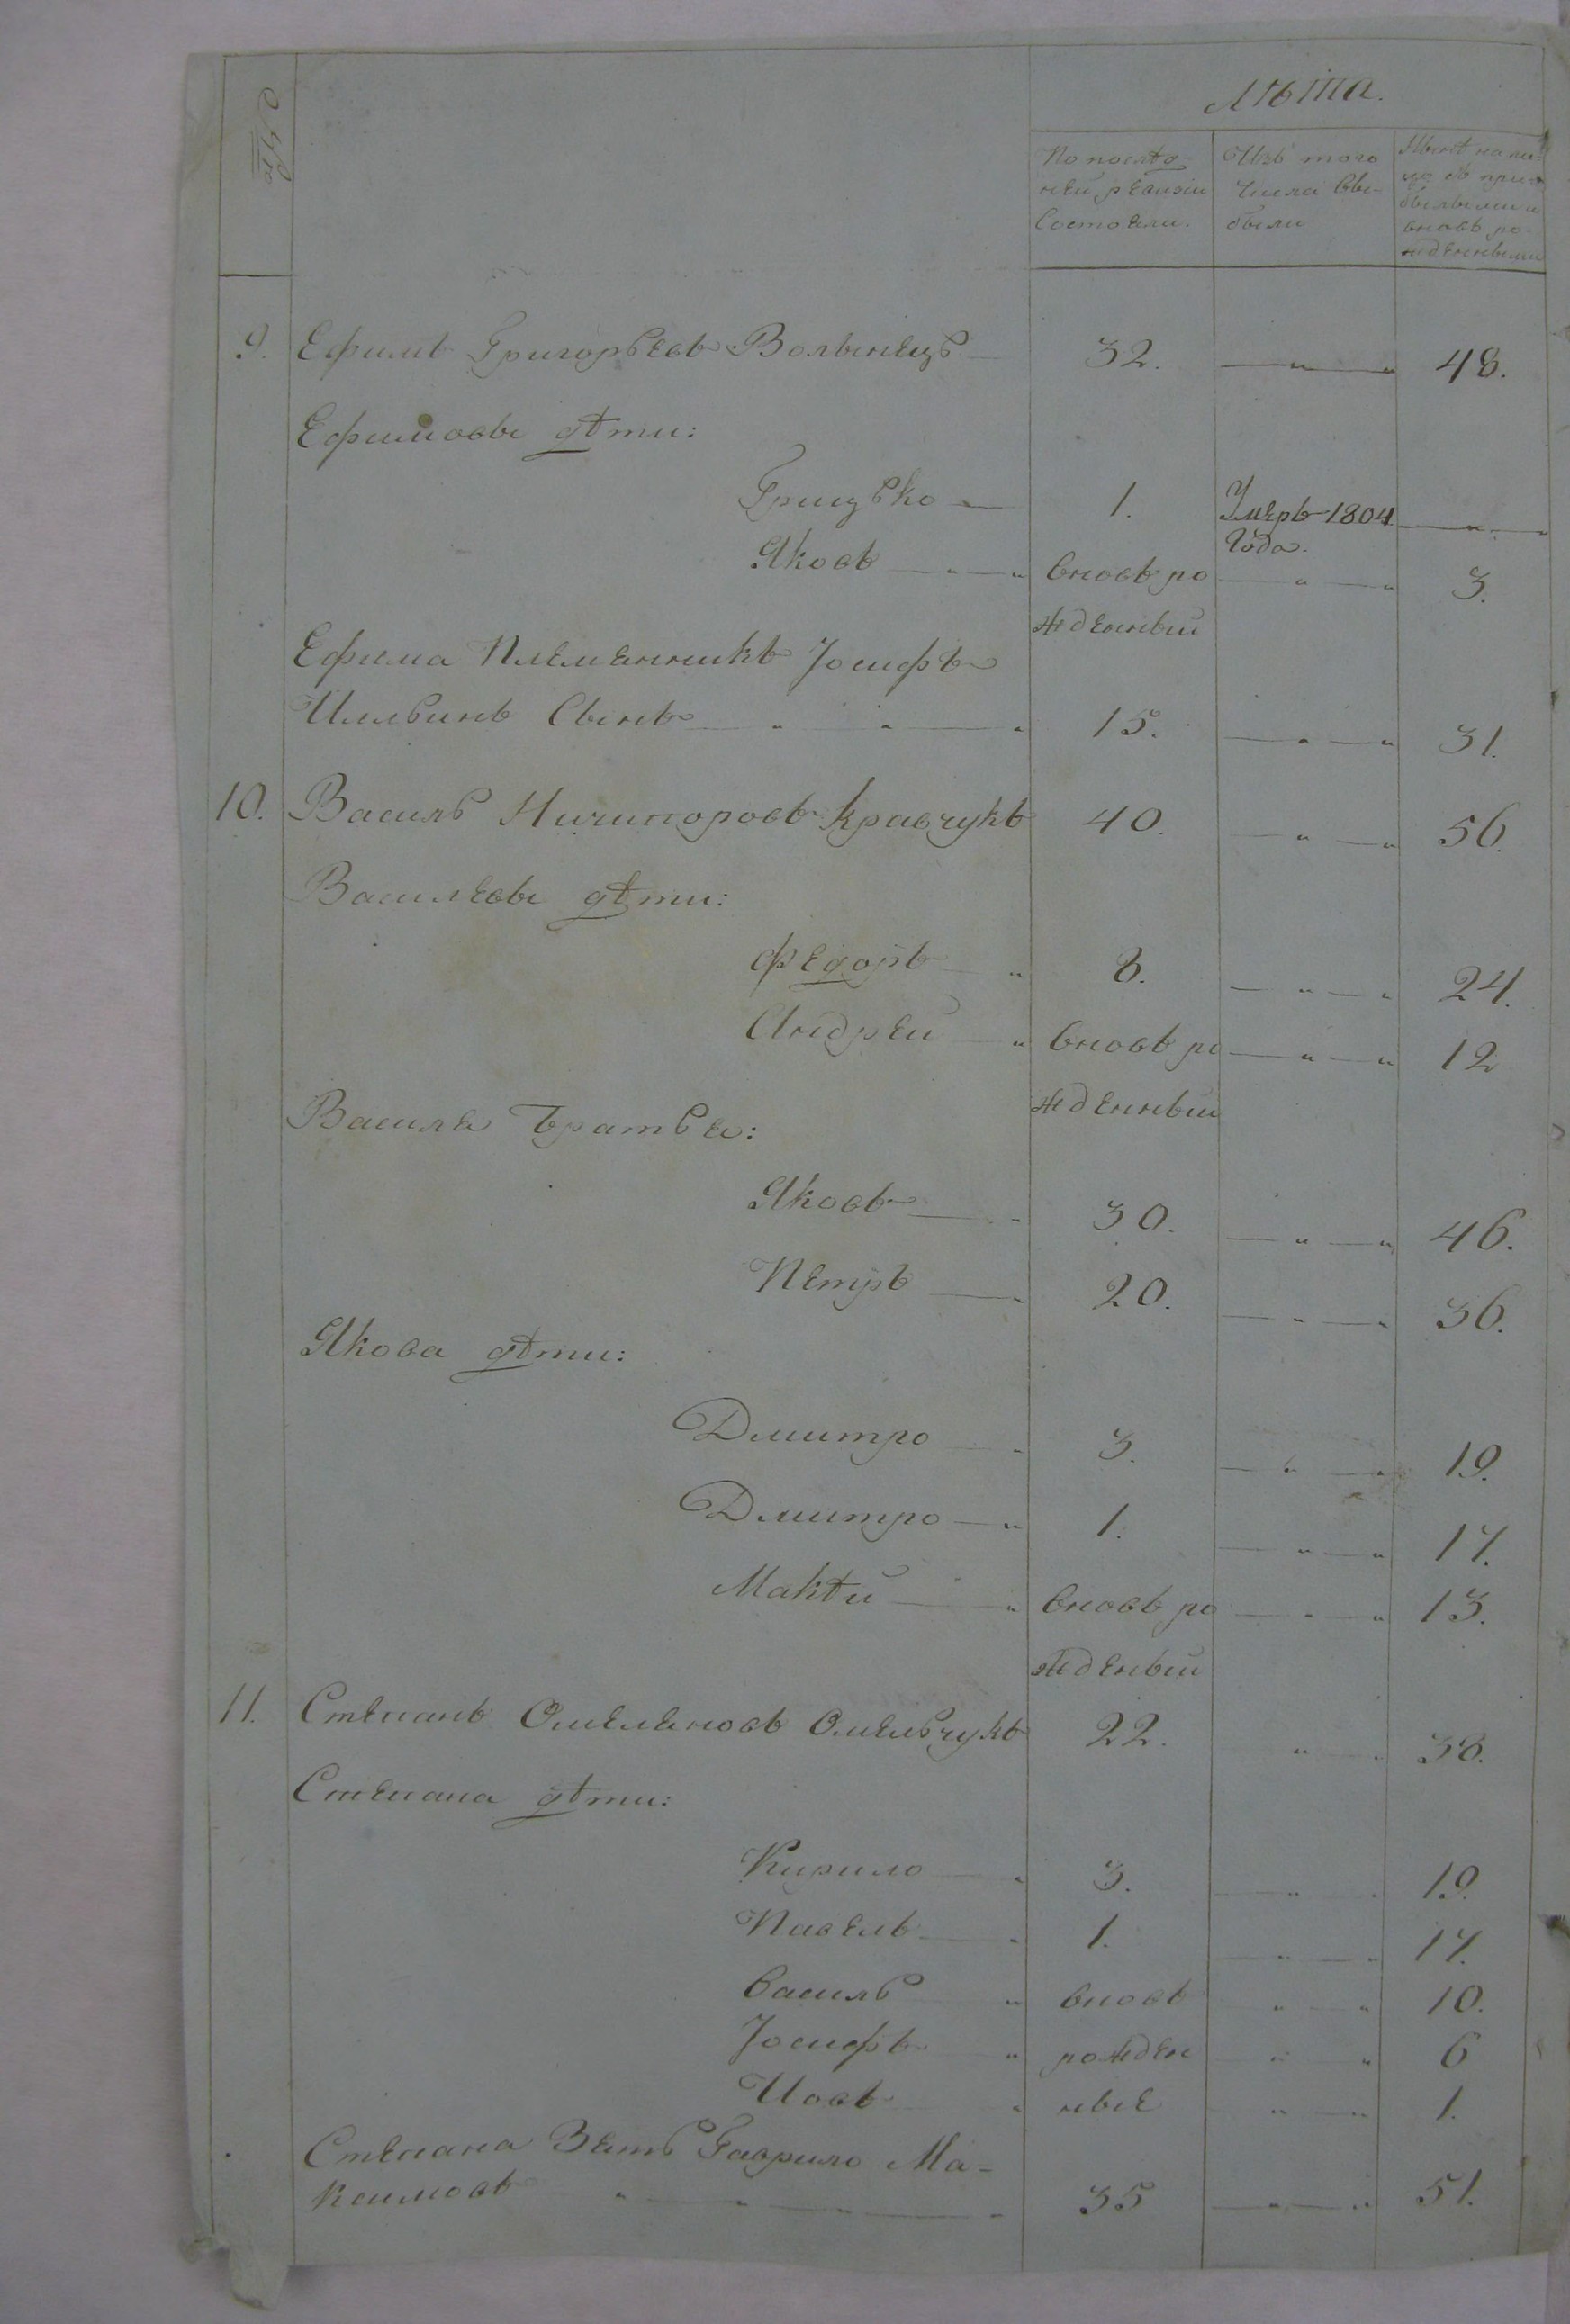 №
Лѣта.
По послѣд-
ней ревизіи
состояли.
Изъ того
числа вы-
были
Нынѣ на ли-
цо съ при-
былыми и
вновь ро-
жденными
9. Ефимъ Григорьевъ Волынецъ 32. — „ — „ 48.
Ефимовы дѣти:
Грицько — 1. Умеръ 1804 — „ —
года.
Яковъ — „ — „ вновь ро — „ — „ 3.
жденный
Ефима Племянникъ Іосифъ
Ильинъ Сынъ — „ „ — „ 15. — „ — „ 31.
10. Василь Ничипоровъ Кравчукъ 40. — „ — „ 56.
Василевы дѣти:
Федоръ — „ 8. — „ — „ 24.
Андрей — „ вновь ро — „ — „ 12
жденный
Василя Братья:
Яковъ — „ 30. — „ — „ 46.
Петръ — „ 20. — „ — „ 36.
Якова дѣти:
Дмитро — „ 3. — „ — „ 19.
Дмитро — „ 1. — „ — „ 17.
Мактѣй — „ вновь ро — „ — „ 13.
жденый
11. Степанъ Омеляновъ Омельчукъ 22. „ „ 38.
Степана дѣти:
Кирило — „ 3. — „ — „ 19.
Павелъ — „ 1. — „ — „ 17.
Василь „ вновь „ — „ 10.
Іосифъ „ рожден „ — „ 6
Иовъ „ ные „ — „ 1.
Степана Зять Гаврило Ма-
ксимовъ „ — „ — „ 35 — „ — „ 51.